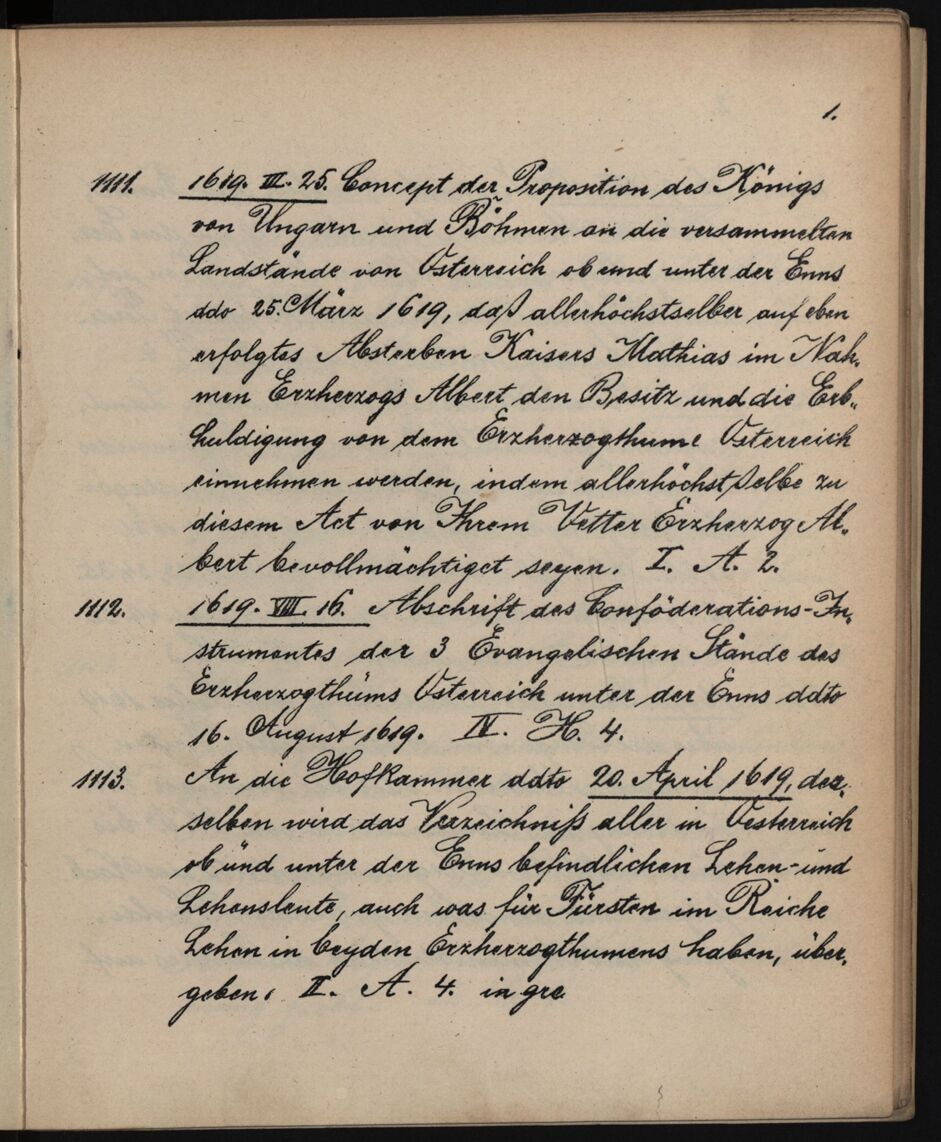 1.
1111. 1619. III. 25. Concept der Proposition des Königs
von Ungarn und Böhmen an die versammelten
Landstände von Österreich ob und unter der Enns
ddo 25. März 1619, daß allerhöchstselber auf eben
erfolgtes Absterben Kaisers Mathias im Nah-
men Erzherzogs Albert den Besitz und die Erb-
huldigung von dem Erzherzogthume Österreich
einnehmen werden, indem allerhöchstselbe zu
diesem Act von Ihrem Vetter Erzherzog Al-
bert bevollmächtiget seyen. I. A. 2.
1112. 1619. VIII. 16. Abschrift des Conföderations-In-
strumentes der 3 Evangelischen Stände des
Erzherzogthüms Österreich unter der Enns ddto
16. August 1619. IV. H. 4.
1113. An die Hofkammer ddto 20. April 1619, der-
selben wird das Verzeichniß aller in Oesterreich
ob ünd unter der Enns befindlichen Lehen- und
Lehensleute, auch was für Fürsten im Reiche
Lehen in beyden Erzherzogthumens haben, über-
geben. II. A. 4. in gre